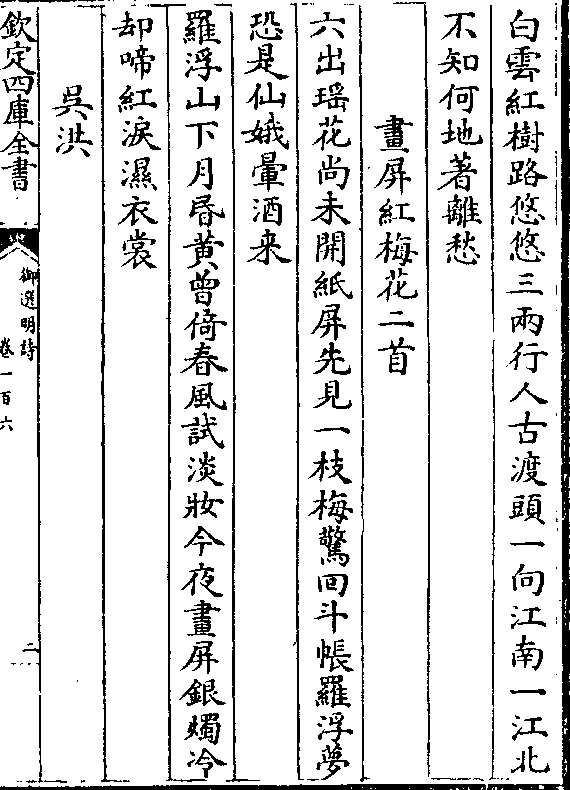 白雲紅樹路悠悠三兩行人古渡頭一向江南一江北
不知何地著離愁
畫屏紅梅花二首
六出瑶花尚未開紙屏先見一枝梅驚回斗帳羅浮夢
恐是仙娥暈酒来
羅浮山下月昏黄曽倚春風試淡妝今夜畫屏銀燭冷
却啼紅淚濕衣裳
吳洪
欽定四庫全書
御選明詩
卷一百六
二